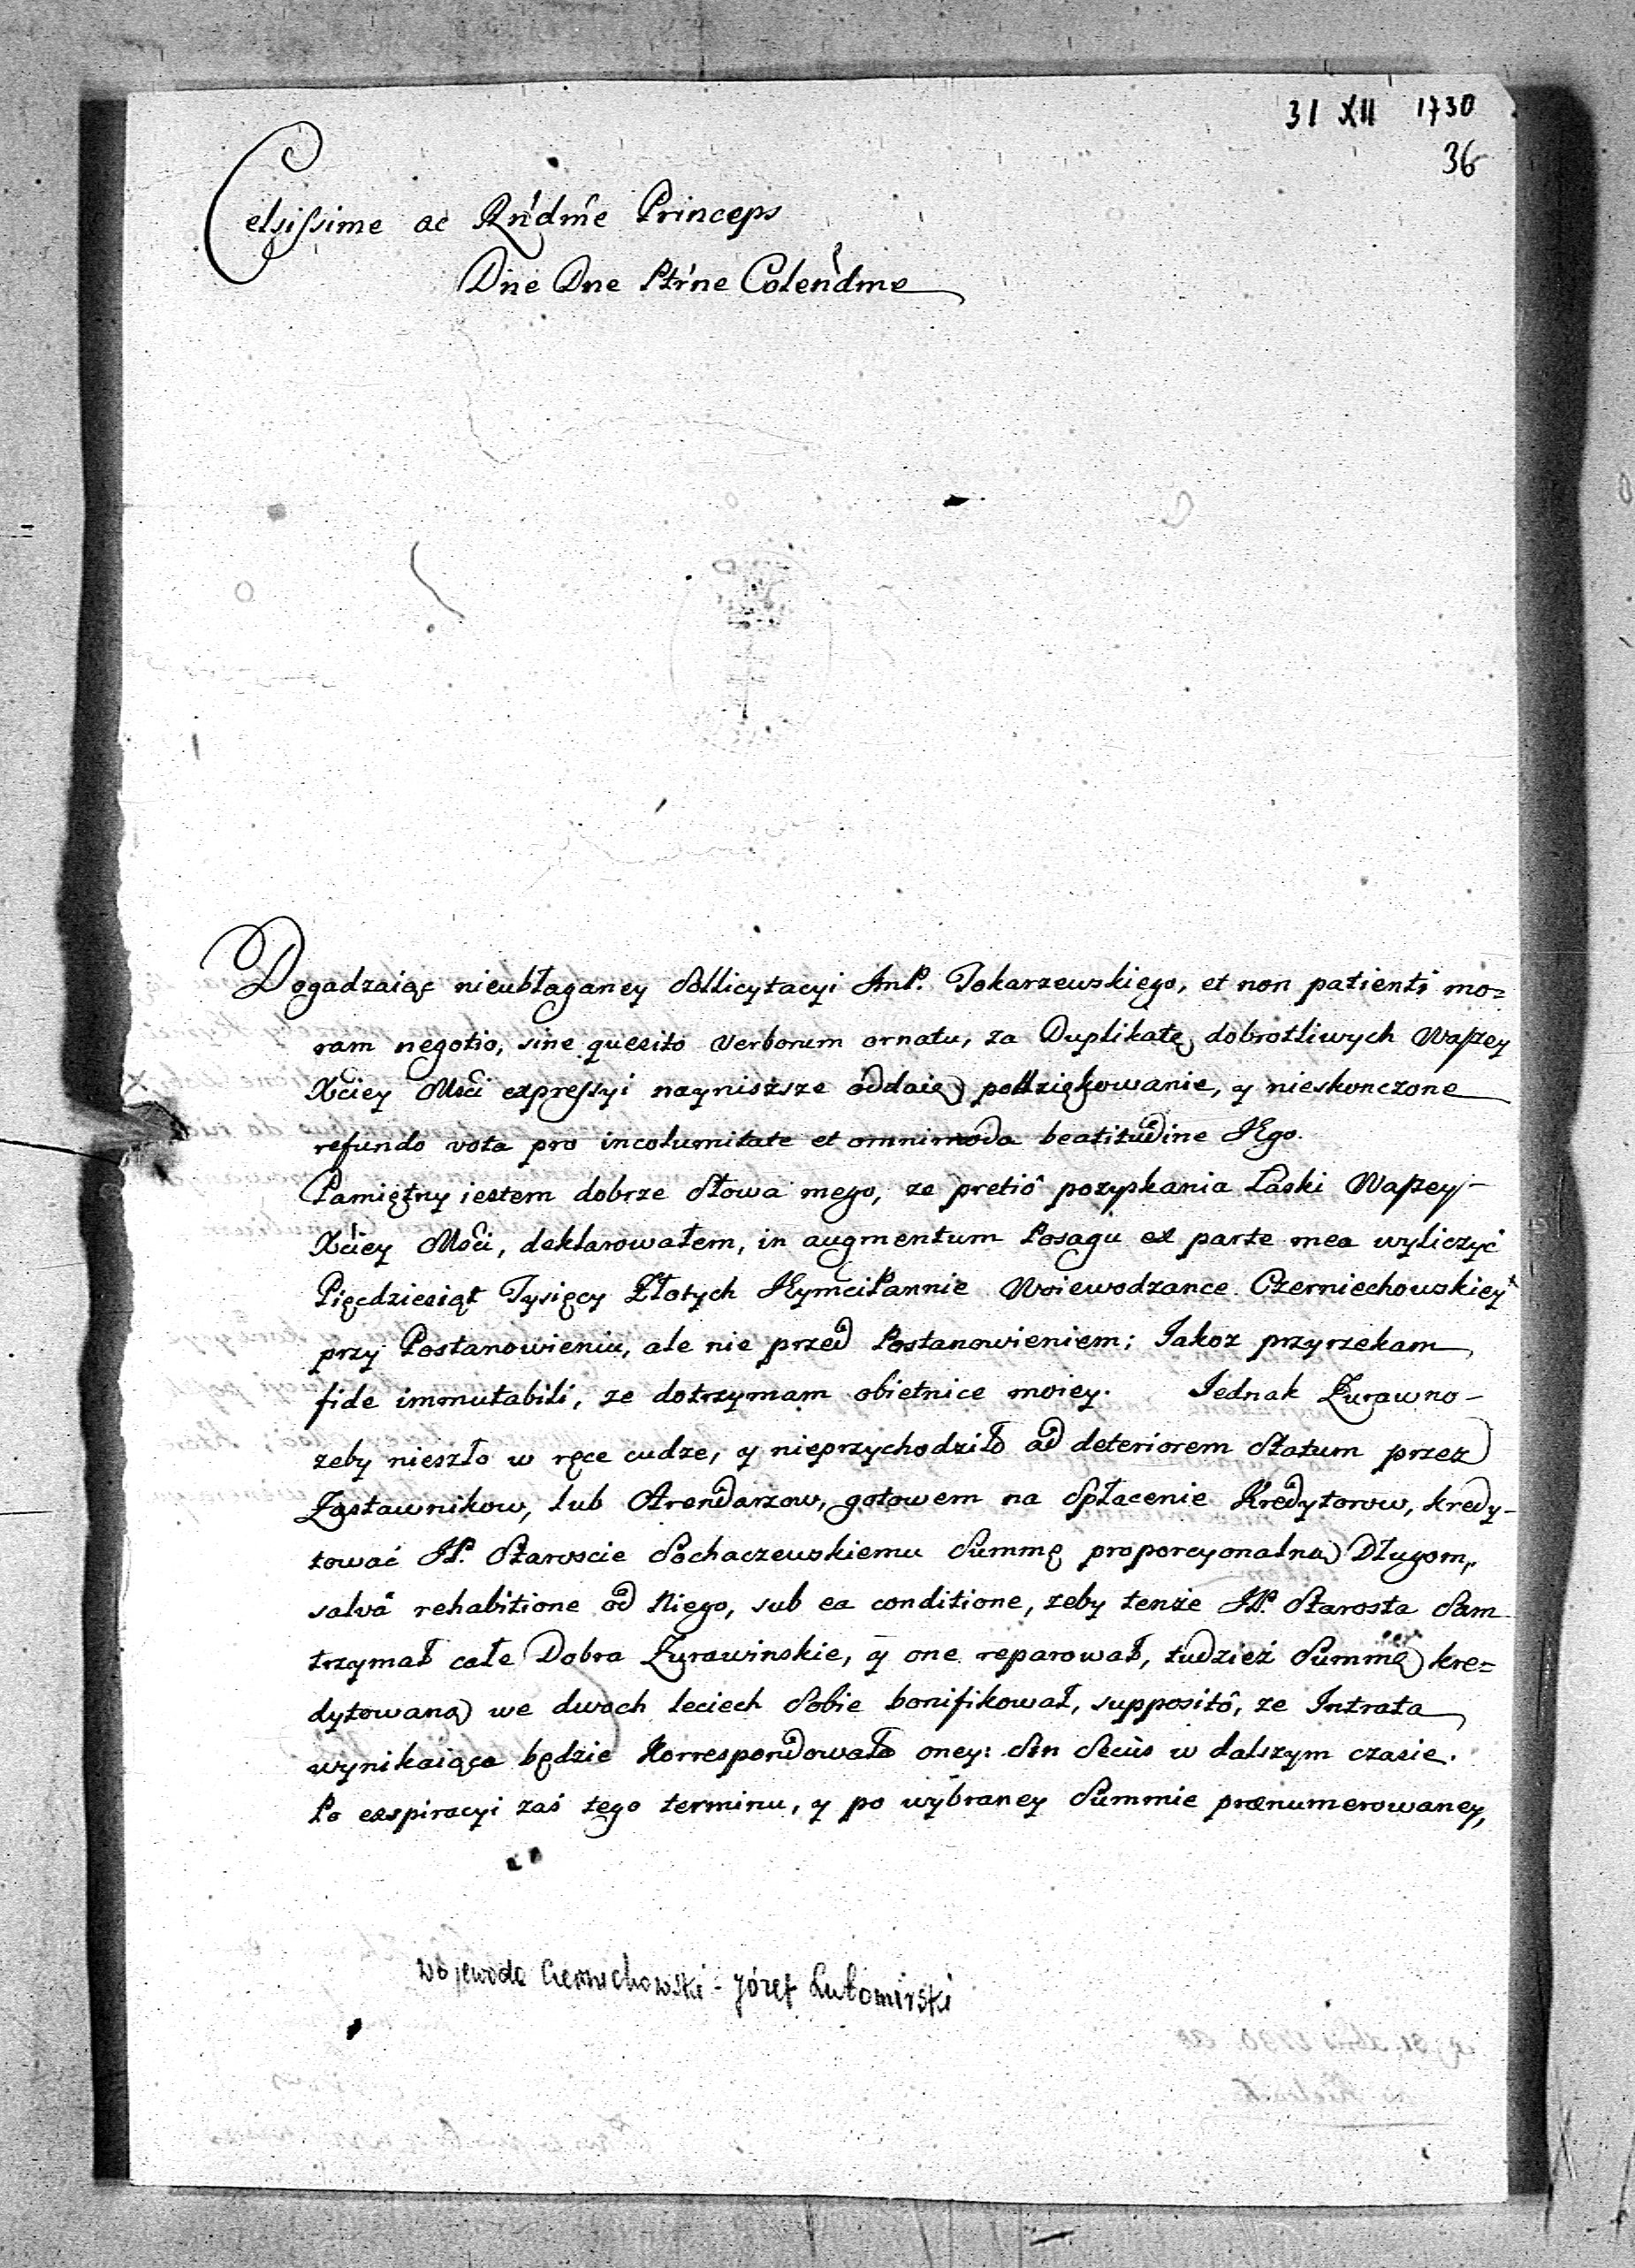 31 XII 1730
36
Celsissime ac Rńdḿe Princeps
Dne Dne Ptrńe Colendme
Dogadzaiąc nieubłaganey Sollicytacyi ImP. Tokarzewskiego, et non patienti mo=
ram negotio, sine quesito verborum ornatu, za Duplikatę dobrotliwych Waszey
Xciey Mści expressyi nayniższe oddaię podziękowanie, y nieskonczone
refundo vota pro incolumitate et omnimoda beatitudine JEgo.
Pamiętny iestem dobrze Słowa mego, ze pretiô pozyskania Łaski Waszey
Xciey Mści, deklarowałem, in augmentum Posagu ex parte mea wyliczyć
Pięćdziesiąt Tysięcy Złotych JEymciPannie Woiewodzance Czerniechowskiey
przy Postanowieniu, ale nie przed Postanowieniem; Iakoz przyrzekam
fide immutabili, ze dotrzymam obietnice moiey. Iednak Zurawno-
zeby nieszło w ręce cudze, y nieprzychodziło ad deteriorem Statum przez
Zastawnikow, lub Arendarzow, gotowem na Spłacenie Kredytorow, kredy-
tować JP. Staroscie Sochaczewskiemu Summę proporcyonalną Długom,
salvâ rehabitione od Niego, sub ea conditione, zeby tenże JP. Starosta Sam
trzymał całe Dobra Zurawinskie, y one reparował, tudzież Summę kre=
dytowaną we dwoch leciech Sobie bonifikował, suppositô, ze Intrata
wynikaiąca będzie Korrespondowała oney: Sin Secùs w dalszym czasie.
Po exspiracyi zaś tego terminu, y po wybraney Summie prænumerowaney,
wojewoda Czernichowski - Józef Lubomirski